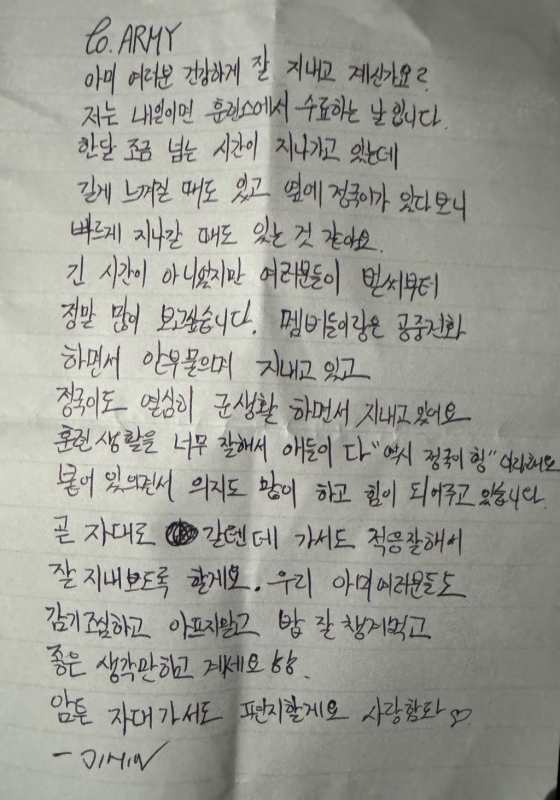 to. ARMY
아미 여러분 건강하게 잘 지내고 계신가요?
저는 내일이면 훈련소에서 수료하는 날 입니다.
한달 조금 넘는 시간이 지나가고 있는데
길게 느껴질 때도 있고 옆에 정국이가 있다보니
빠르게 지나갈 때도 있는 것 같아요.
긴 시간이 아니였지만 여러분들이 벌써부터
정말 많이 보고싶습니다. 멤버들이랑은 공중전화
하면서 안부물으며 지내고 있고
정국이도 열심히 군생활 하면서 지내고 있어요
훈련생활을 너무 잘해서 애들이 다 "역시 정국이 형" 이라해요
붙어 있으면서 의지도 많이 하고 힘이 되어주고 있습니다.
곧 자대로 갈텐데 가서도 적응잘해서
잘 지내보도록 할게요. 우리 아미여러분들도
감기조심하고 아프지말고 밥 잘 챙겨먹고
좋은 생각만하고 계세요 ㅎㅎ.
암튼 자대가서도 편지할게요 사랑함돠 ♡
- JIMIN